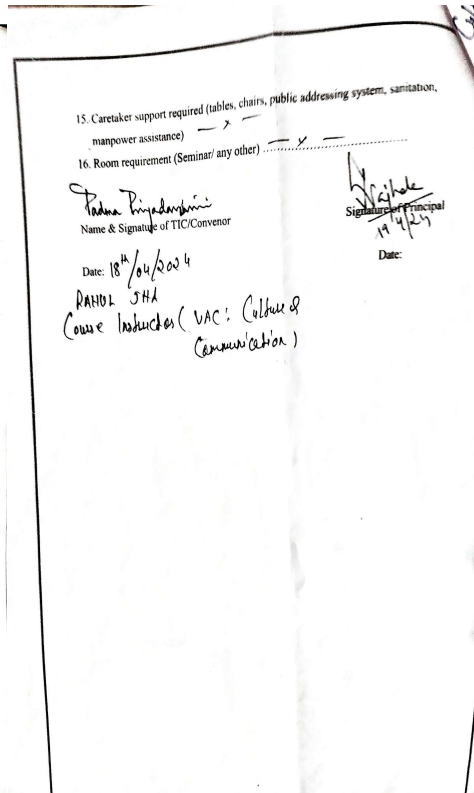 15. Caretaker support required (tables, chairs, public addressing system, sanitation,
manpower assistance) — x —
16. Room requirement (Seminar/ any other) ........ — x — ........
Padma Priyadarshini
Name & Signature of TIC/Convenor
Signature of Principal
19/4/24
Date: 18th/04/2024
Date:
RAHUL JHA
Course Instructor ( VAC: Culture &
Communication )